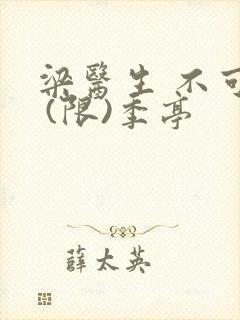 梁醫生 不可
(限)季亭
薛太英